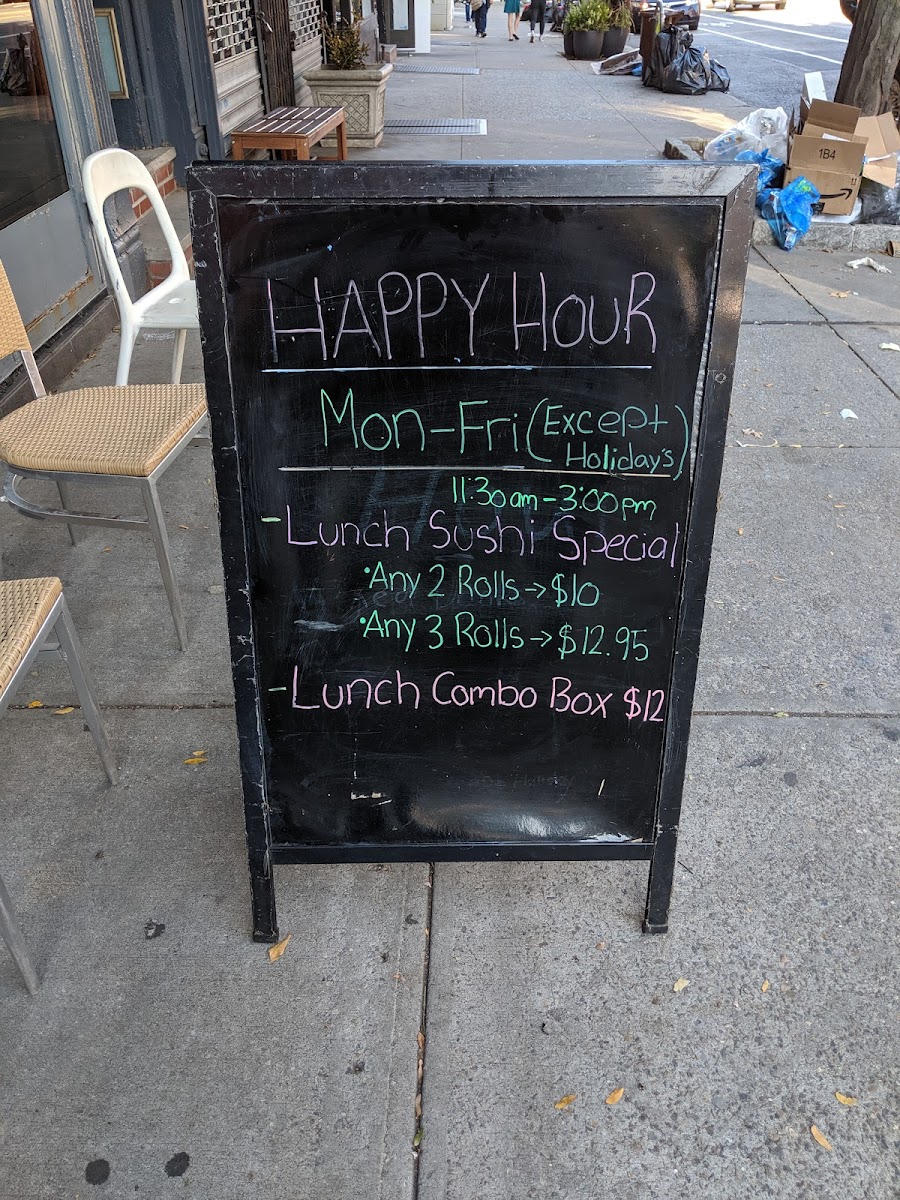 HAPPY HOUR
Mon-Fri (Except
Holiday's)
11:30am-3:00pm
- Lunch Sushi Special
• Any 2 Rolls → $10
• Any 3 Rolls → $12.95
- Lunch Combo Box $12
1B4